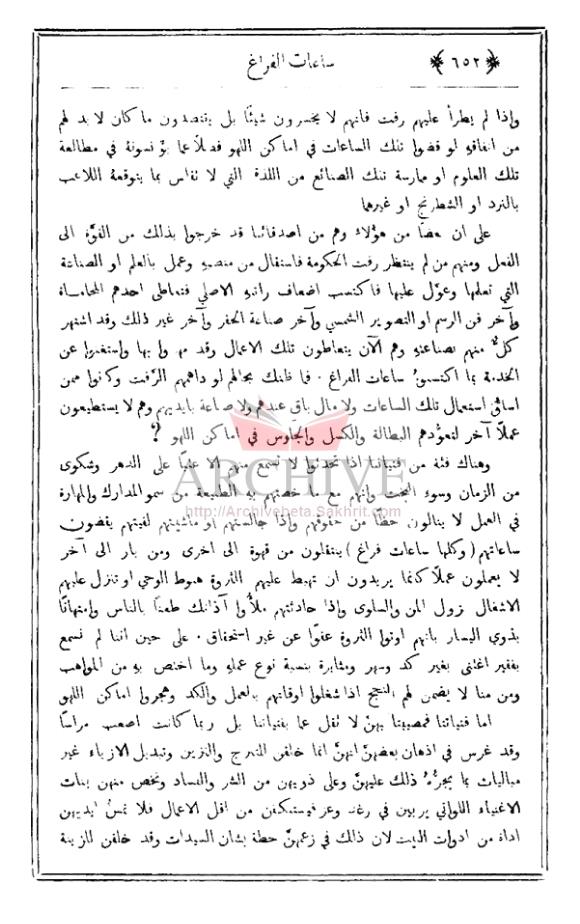 ﴿ ٦٥٢ ﴾
ساعات الفراغ
واذا لم يطرأ عليهم رفت فانهم لا يخسرون شيئًا بل يقتصدون ما كان لا بد لهم
من انفاقهِ لو قضوا تلك الساعات في اماكن اللهو فضلًا عما يؤنسونهُ في مطالعة
تلك العلوم او ممارسة تلك الصنائع من اللذة التي لا تقاس بما يتوقعهُ اللاعب
بالنرد او الشطرنج او غيرهما
على ان بعضًا من هؤلاء وهم من اصدقائنا قد خرجوا بذلك من القوَّة الى
الفعل ومنهم من لم ينتظر رفت الحكومة فاستقال من منصبهِ وعمل بالعلم او الصناعة
التي تعلمها وعوَّل عليها فاكتسب اضعاف راتبهِ الاصلي فتعاطى احدهم المحاماة
وآخر فن الرسم او التصوير الشمسي وآخر صناعة الحفر وآخر غير ذلك وقد اشتهر
كلٌّ منهم بصناعتهِ وهم الآن يتعاطون تلك الاعمال وقد مهروا بها واستغنوا عن
الخدمة بما اكتسبوهُ ساعات الفراغ . فما ظنك بحالهم لو داهمهم الرَّفت وكانوا ممن
اساؤا استعمال تلك الساعات ولا مال باقٍ عندهم ولا صناعة بايديهم وهم لا يستطيعون
عملًا آخر لتعوُّدهم البطالة والكسل والجلوس في اماكن اللهو ?
وهناك فئة من فتياننا اذا تحدثوا لا تسمع منهم الا عتبًا على الدهر وشكوى
من الزمان وسوء البخت وانهم مع ما خصتهم بهِ الطبيعة من سمو المدارك والمهارة
في العمل لا ينالون حظًّا من حقوقهم واذا جالستهم او ماشيتهم لقيتهم يقضون
ساعاتهم ( وكلها ساعات فراغ ) يتنقلون من قهوة الى اخرى ومن بار الى آخر
لا يعملون عملًا كأنما يريدون ان تهبط عليهم الثروة هبوط الوحي او تنزل عليهم
الاشغال نزول المن والسلوى واذا حادثتهم ملأوا آذانك طعنًا بالناس وامتهانًا
بذوي اليسار بانهم اوتوا الثروة عفوًا عن غير استحقاق . على حين اننا لم نسمع
بفقير اغتنى بغير كد وسهر ومثابرة بنسبة نوع عملهِ وما اختص بهِ من المواهب
ومن منا لا يضمن لهم النجح اذا شغلوا اوقاتهم بالعمل والكد وهجروا اماكن اللهو
اما فتياتنا فمصيبتنا بهنَّ لا تقل عما بفتياننا بل ربما كانت اصعب مراسًا
وقد غرس في اذهان بعضهنَّ انهنَّ انما خلقن للتبرج والتزين وتبديل الازياء غير
مباليات بما يجرُّهُ ذلك عليهنَّ وعلى ذويهن من الشر والفساد ونخص منهن بنات
الاغنياء اللواتي يربين في رغد وعز فيستنكفن من اقل الاعمال فلا تمسُّ ايديهن
اداة من ادوات البيت لان ذلك في زعمهنَّ حطة بشان السيدات وقد خلقن للزينة
ARCHIVE
http://Archivebeta.Sakhrit.com